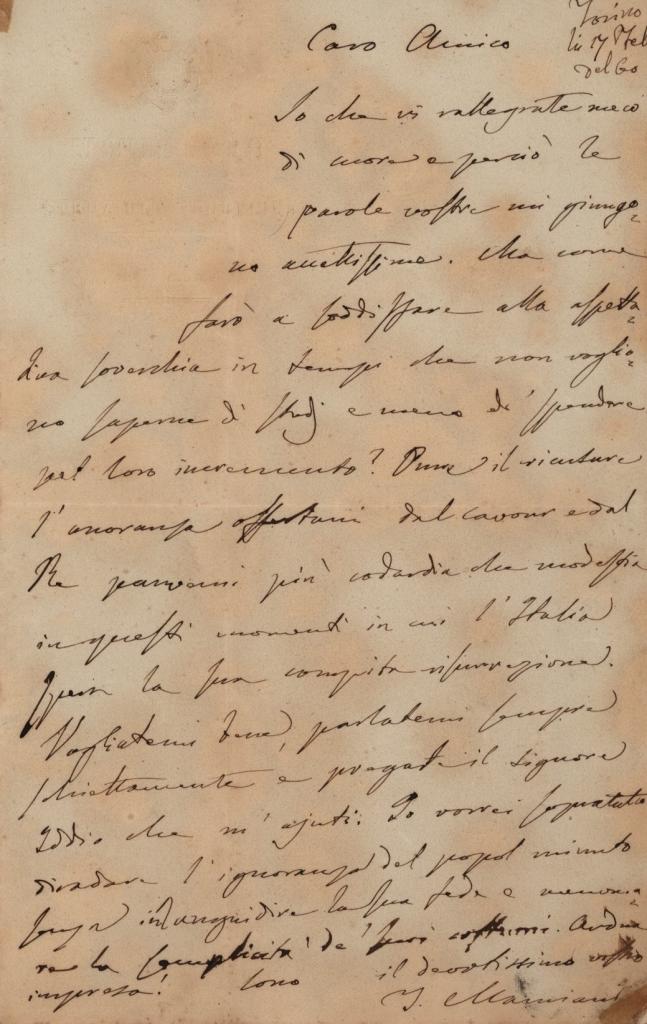 Torino
li 17 Feb
del 60
Caro Amico
So che vi rallegrate meco
di cuore e perciò le
parole vostre mi giungo=
no accettissime. Ma come
farò a soddisfare alla aspetta=
tiva soverchia in tempi che non voglio=
no saperne di studj e meno di spendere
pel loro incremento? Pure il ricusare
l'onoranza offertami dal Cavour e dal
Re parvemi più codardia che modestia
in questi momenti in cui l'Italia
spera la sua compita risurrezione.
Vogliatemi bene, parlatemi sempre
schiettamente e pregate il Signore
Iddio che m'ajuti. Io vorrei sopratutto
diradare l'ignoranza del popol minuto
senza illanguidire la sua fede e
re la semplicità de' suoi costumi. Ardua
impresa! Sono il devotissimo vostro
T. Mamiani